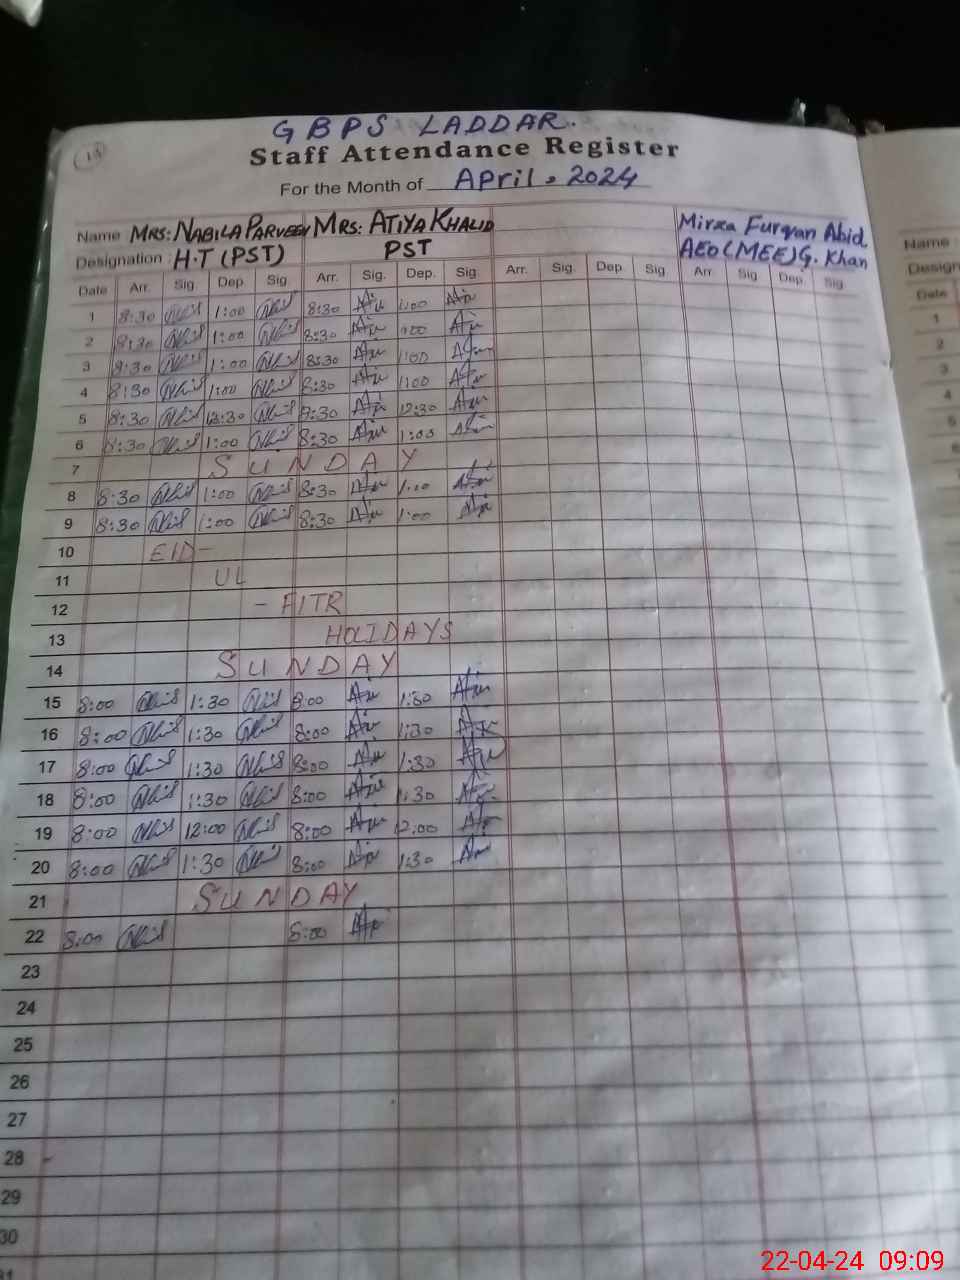 13
GBPS LADDAR.
Staff Attendance Register
For the Month of April, 2024
Name MRS: NABILA PARVEEN MRS: ATIYA KHALID Mirza Furqan Abid
Designation : H.T (PST) PST AEO (MEE) G. Khan
Date Arr. Sig. Dep. Sig. Arr. Sig. Dep. Sig. Arr. Sig. Dep. Sig. Arr. Sig. Dep. Sig.
1 8:30 1:00 8:30 1:00
2 8:30 1:00 8:30 1:00
3 8:30 1:00 8:30 1:00
4 8:30 1:00 8:30 1:00
5 8:30 12:30 8:30 12:30
6 8:30 1:00 8:30 1:00
7 SUNDAY
8 8:30 1:00 8:30 1:00
9 8:30 1:00 8:30 1:00
10 EID-
11 UL
12 - FITR
13 HOLIDAYS
14 SUNDAY
15 8:00 1:30 8:00 1:30
16 8:00 1:30 8:00 1:30
17 8:00 1:30 8:00 1:30
18 8:00 1:30 8:00 1:30
19 8:00 12:00 8:00 12:00
20 8:00 1:30 8:00 1:30
21 SUNDAY
22 8:00 8:00
23
24
25
26
27
28
29
30
31
Name
Date
1
2
3
4
5
22-04-24 09:09